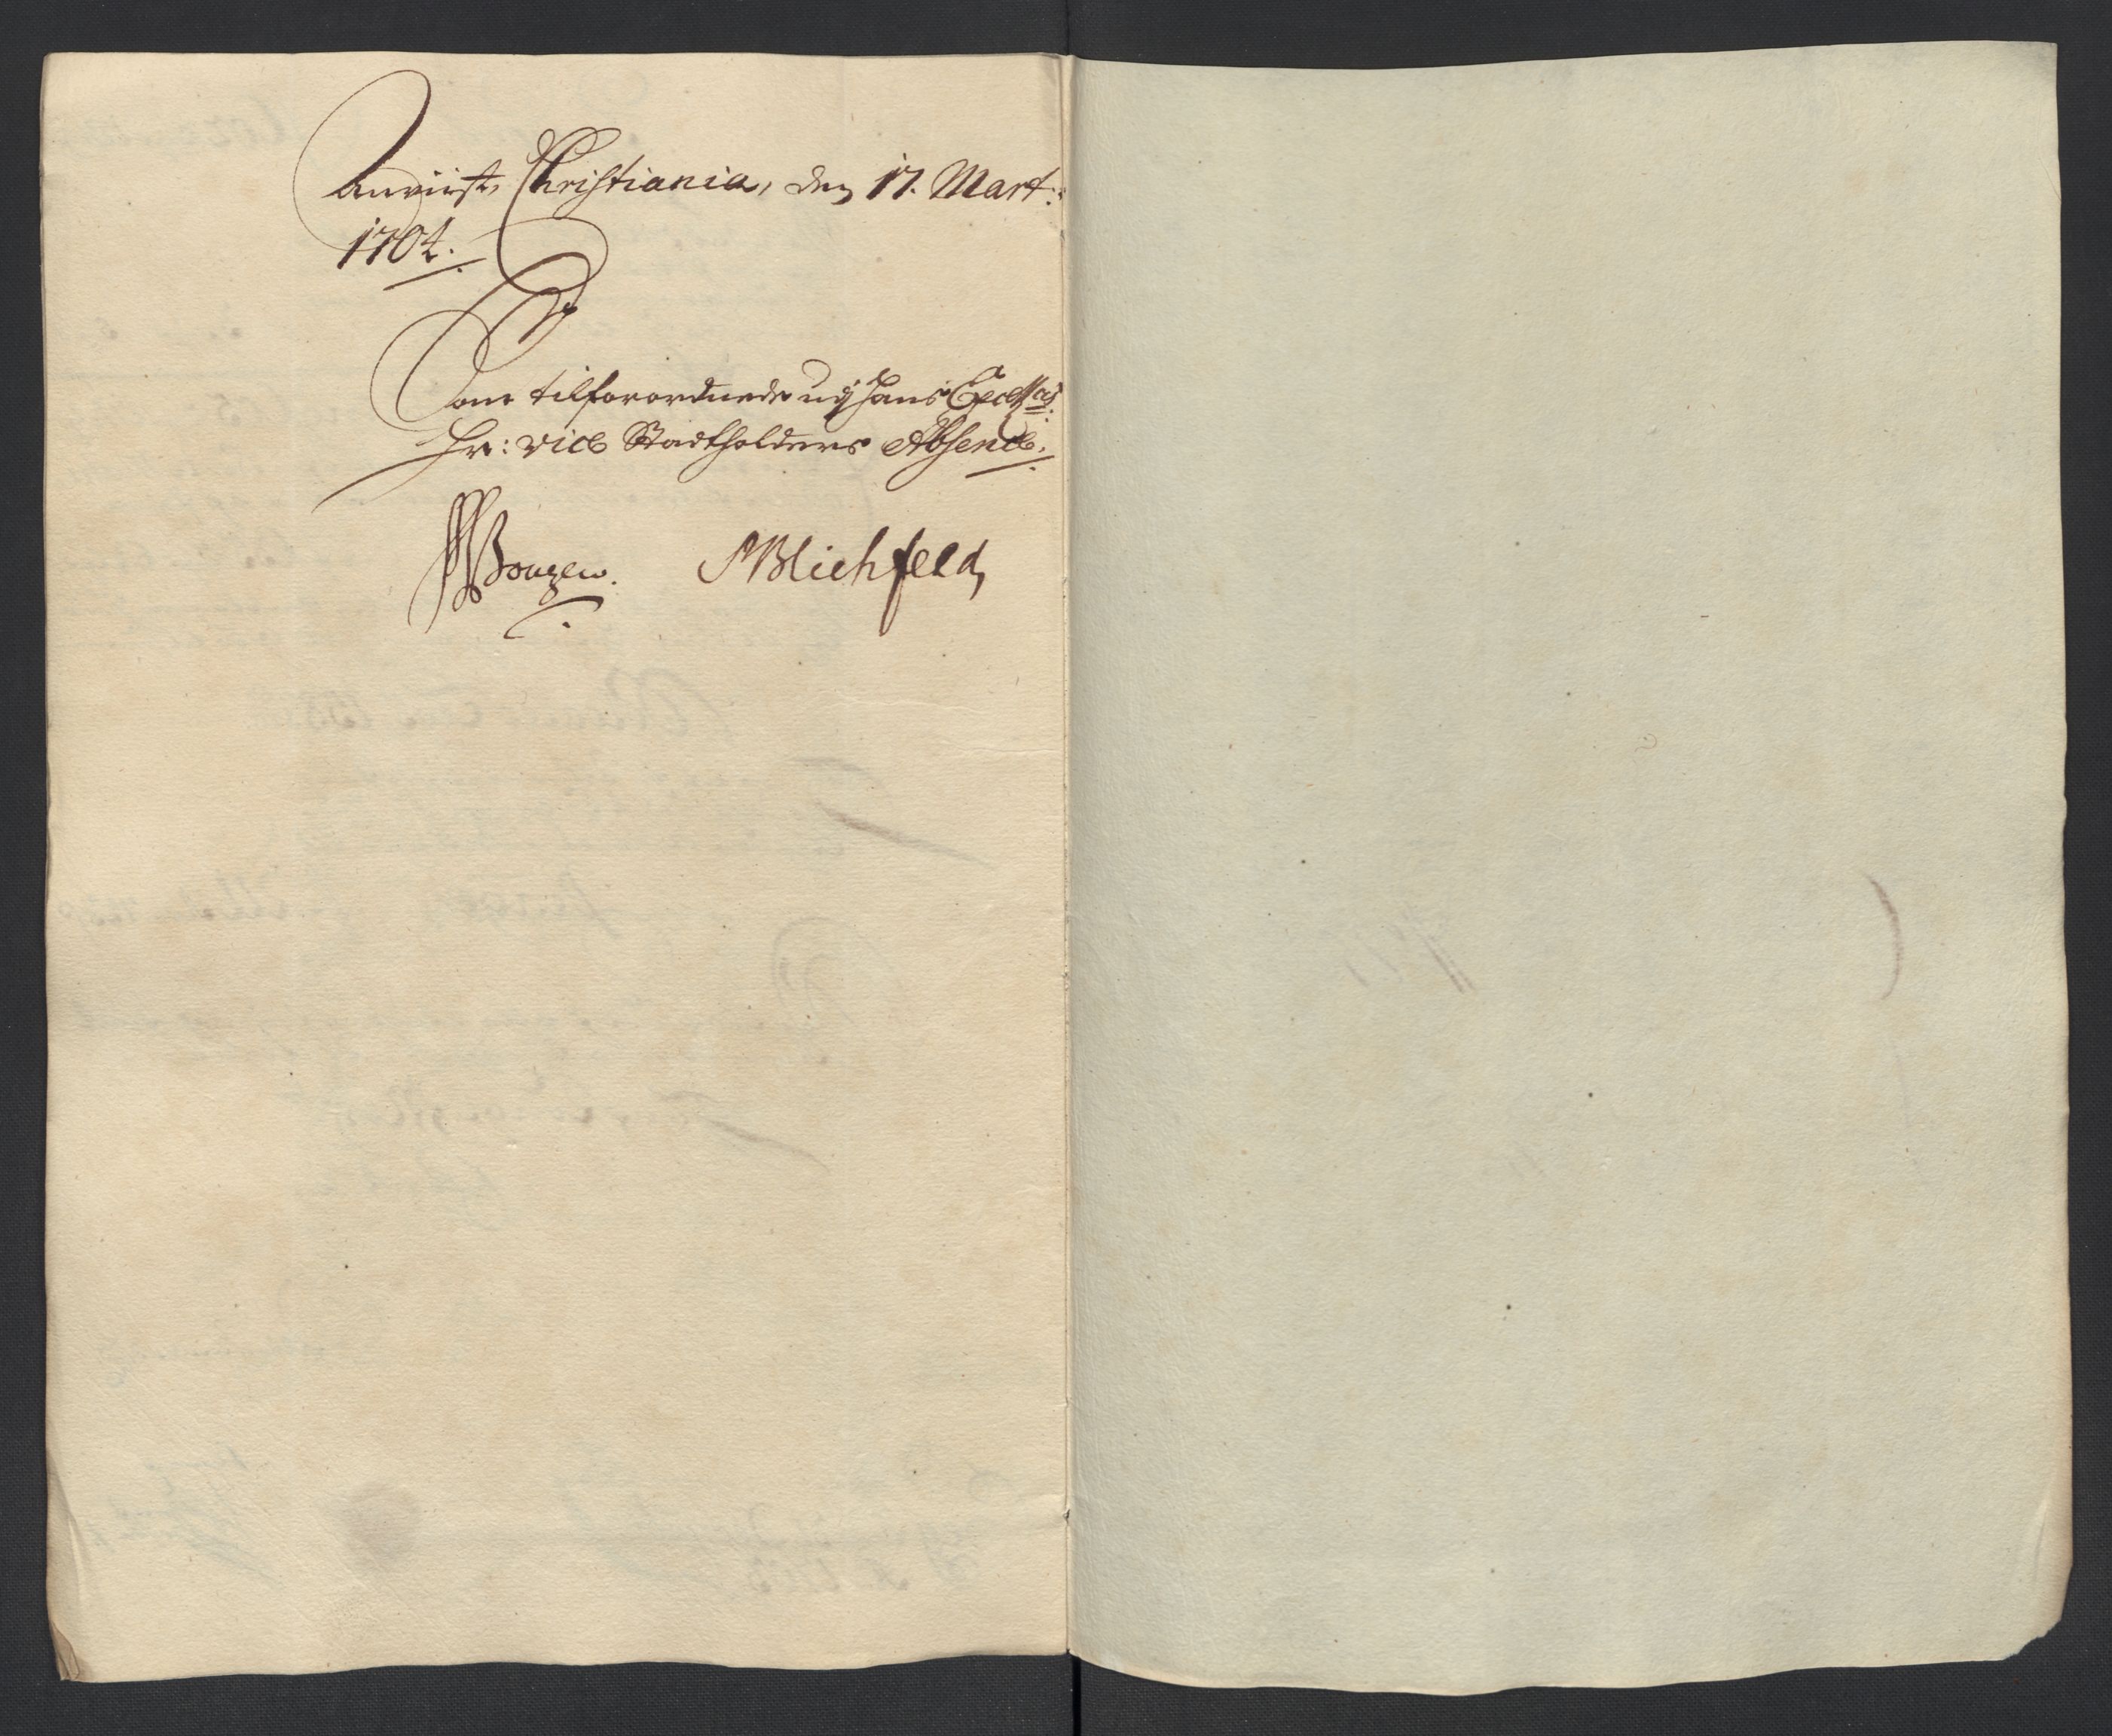 Anviist, Christiania, den 17. Mart:
1704.
Som tilforordnede udj Hans Excell:
Hr: vice Stadtholders Absence.
MBlichfeld